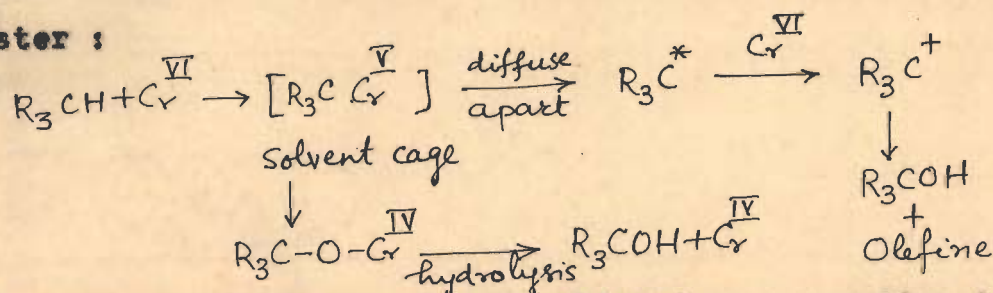 ster :
R₃CH + Cr^VI → [R₃C Cr^V] diffuse apart → R₃C* Cr^VI → R₃C⁺
solvent cage
↓ ↓
R₃C-O-Cr^IV hydrolysis → R₃COH + Cr^IV R₃COH + Olefine